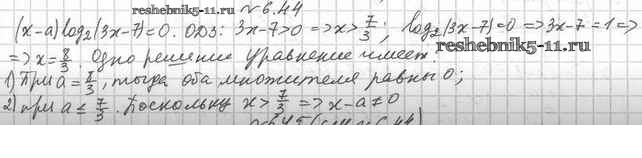 reshebnik5-11.ru
№6.44
reshebnik5-11.ru
(x-a)log₂(3x-7)=0. ОДЗ: 3x-7>0 => x> 7/3; log₂(3x-7)=0 => 3x-7=1 =>
=> x= 8/3. Одно решение уравнение имеет:
1) При a= 8/3, тогда оба множителя равны 0;
2) при a ≤ 7/3. Поскольку x> 7/3 => x-a≠0